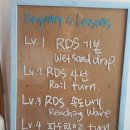 Beginner's Lessons
Lv.1 RDS 기본
Wet sand drop
Lv.2 RDS 사선
Rail turn
Lv.3 RDS 속도내기
Reaching Wave
Lv.4 파도타고 2
turn